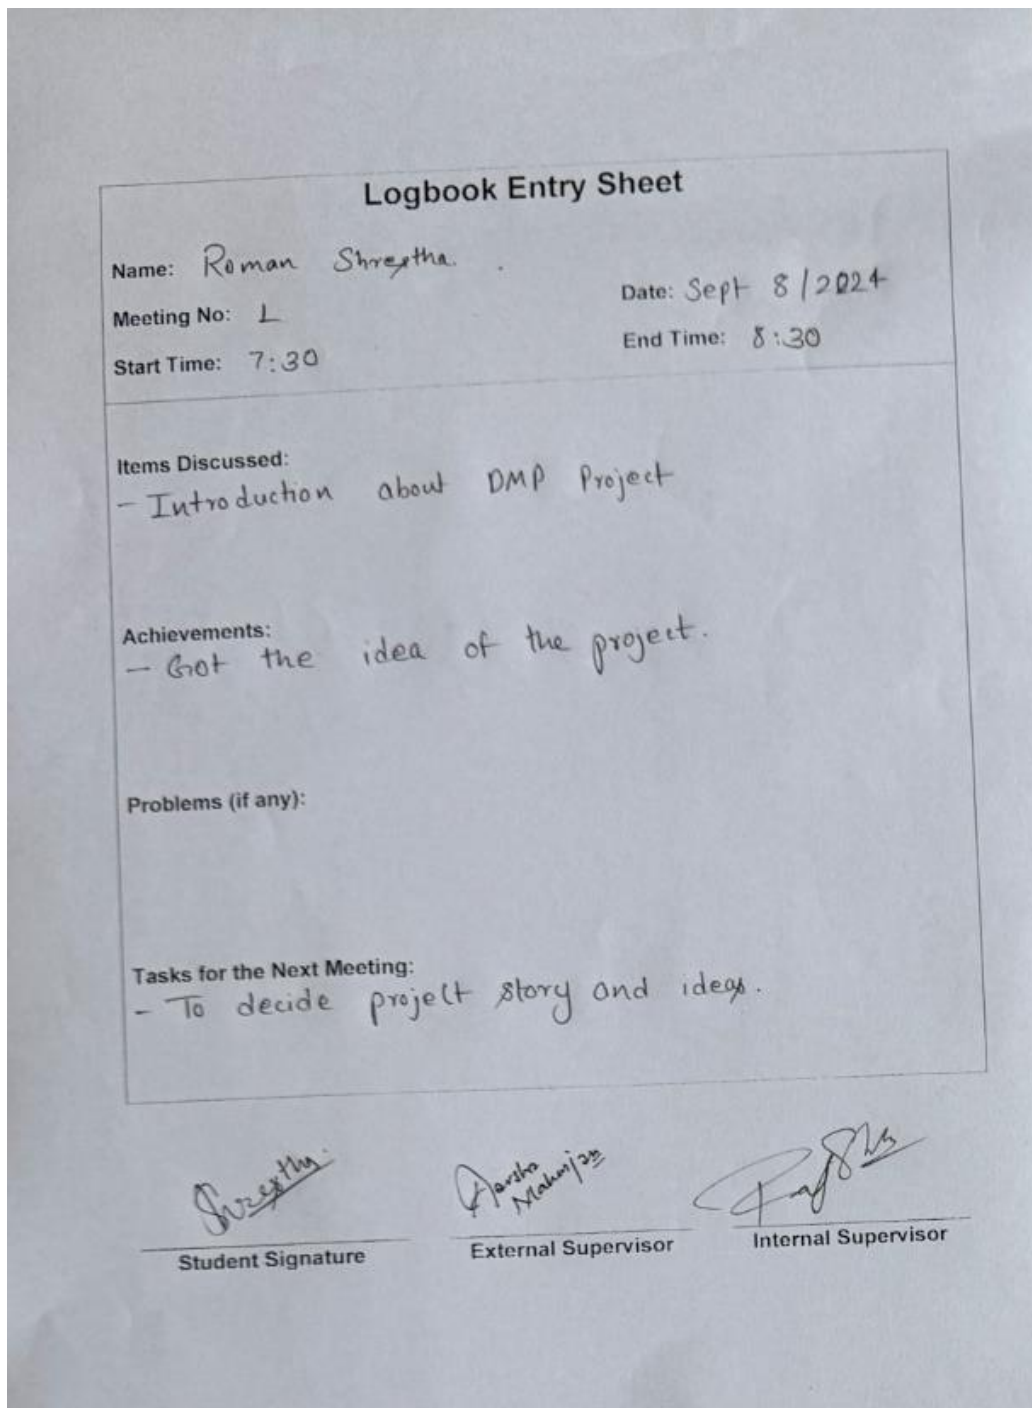 Logbook Entry Sheet
Name: Roman Shrestha.
Date: Sept 8/2024
Meeting No: 1
Start Time: 7:30
End Time: 8:30
Items Discussed:
- Introduction about DMP Project
Achievements:
- Got the idea of the project.
Problems (if any):
Tasks for the Next Meeting:
- To decide project story and ideas.
Shrestha
Maharjan
Student Signature
External Supervisor
Internal Supervisor